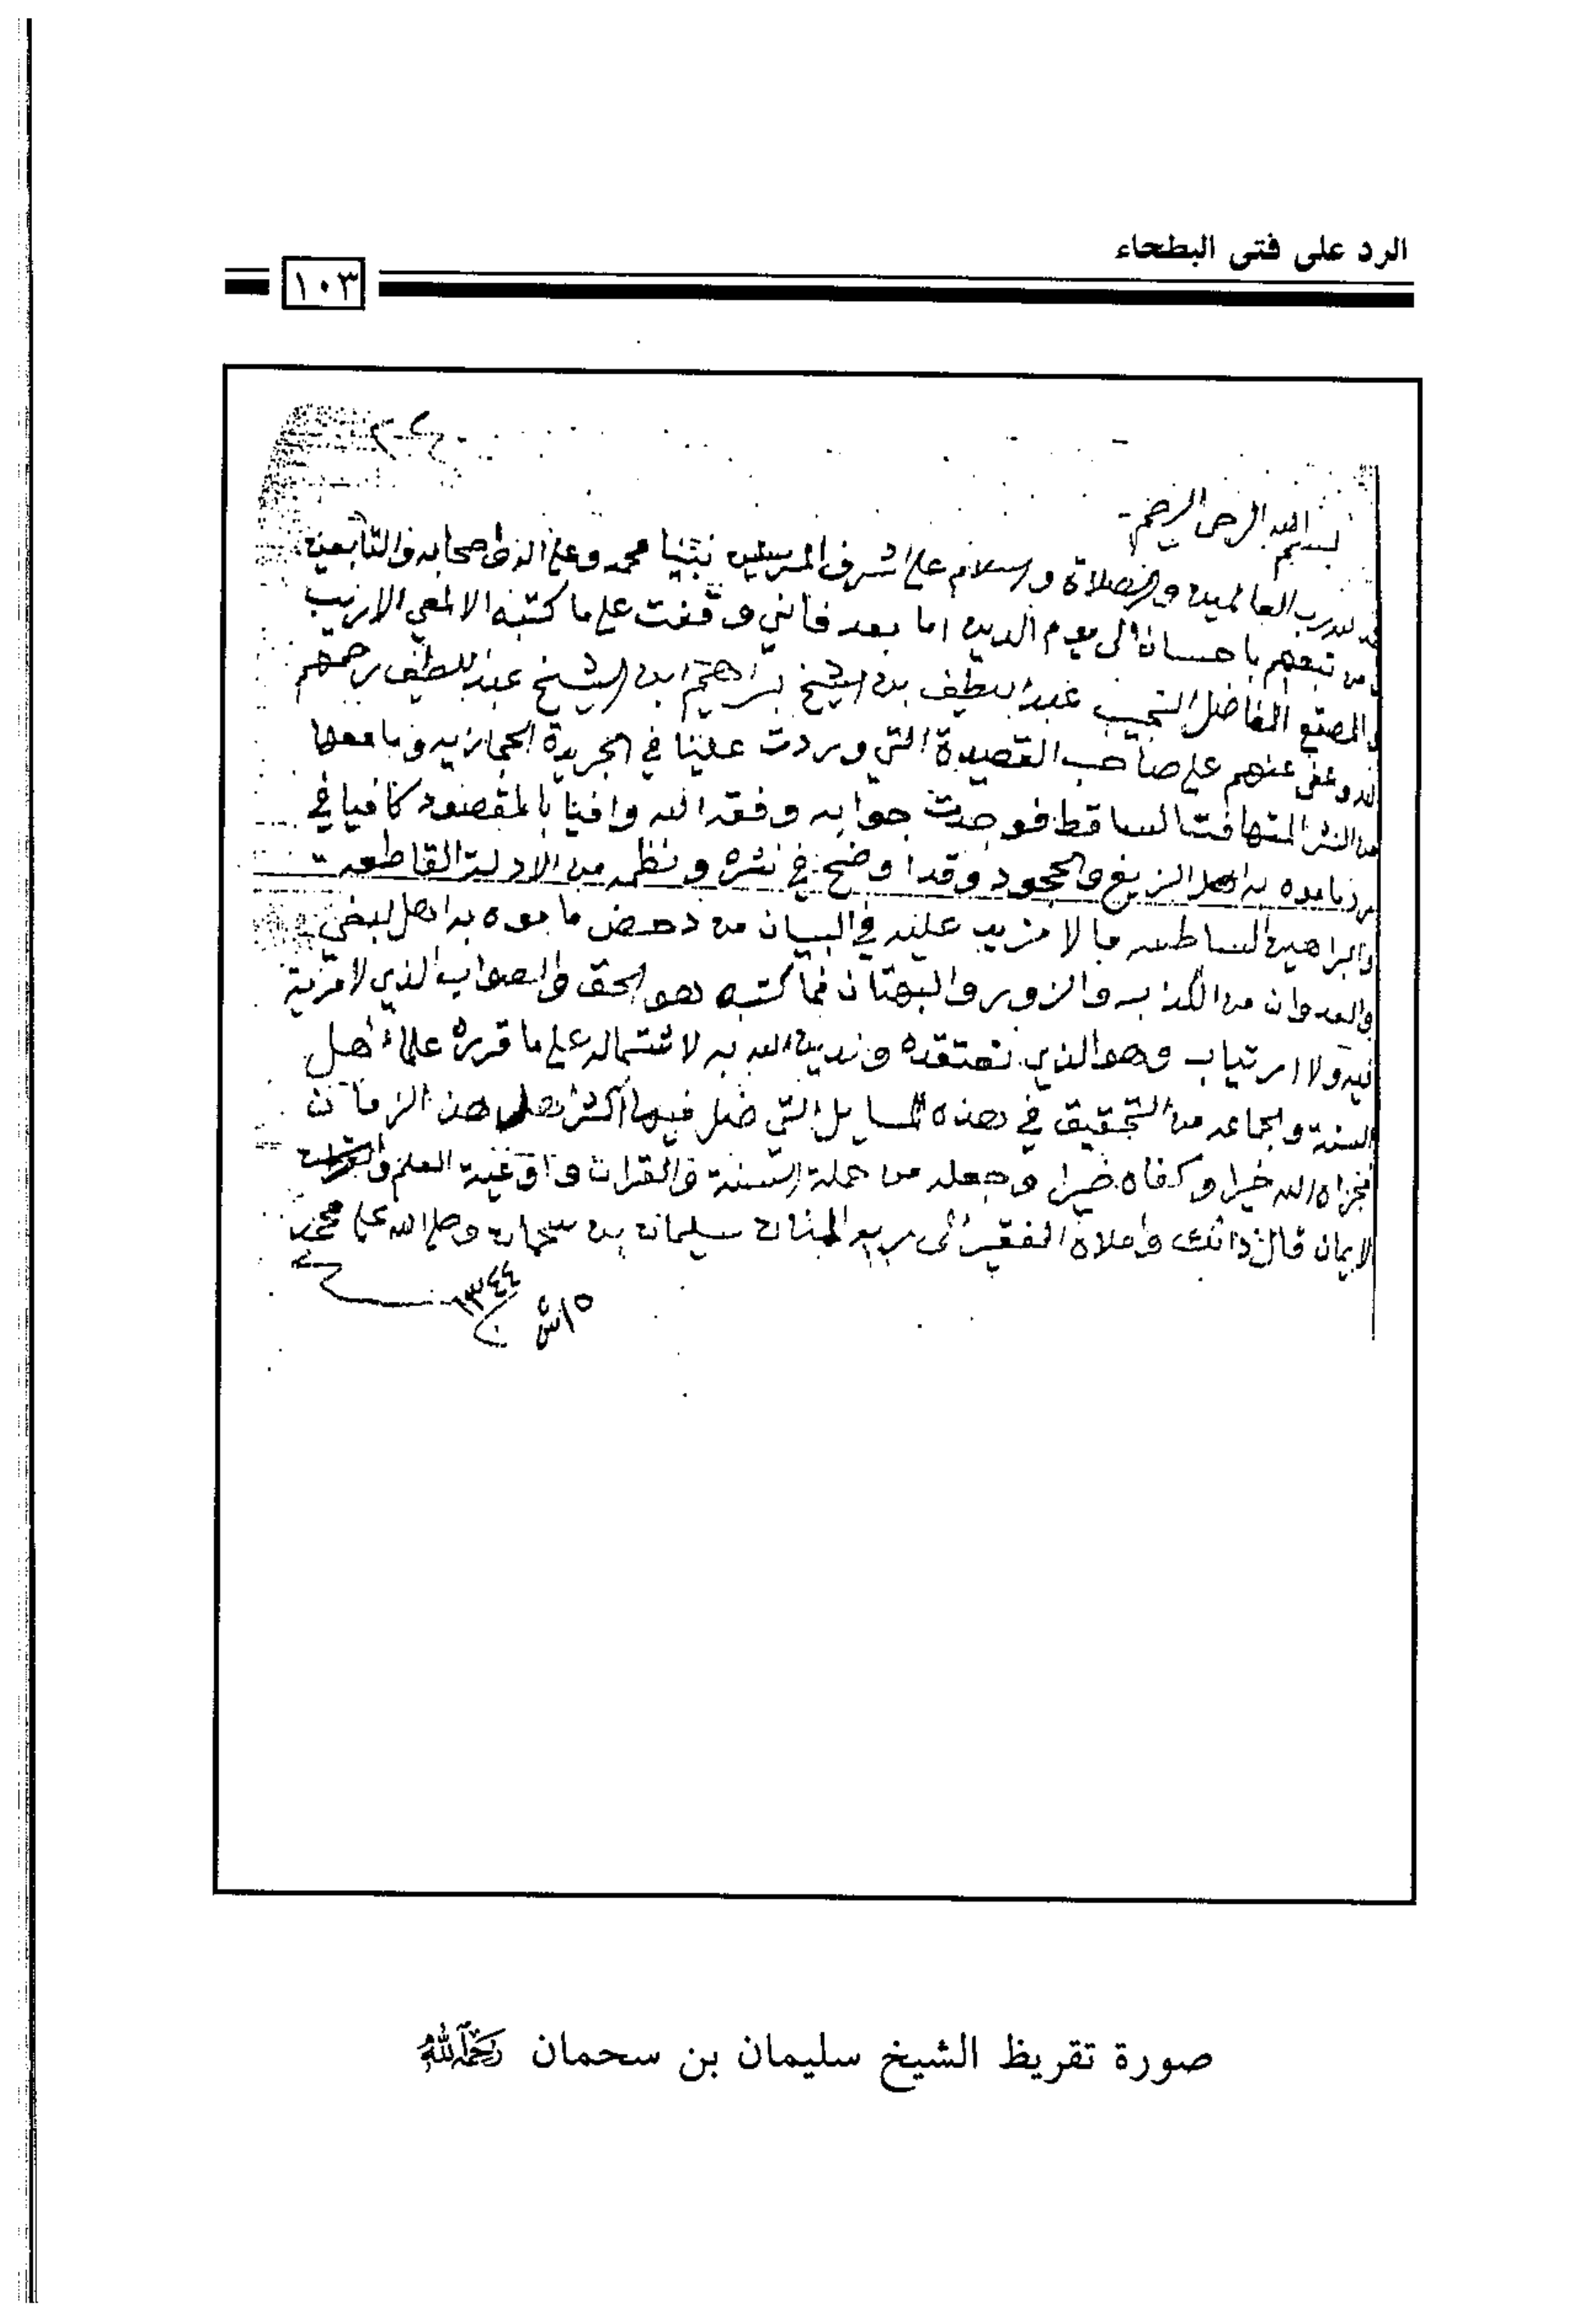 الرد على فتى البطحاء
١٠٣
بسم الله الرحمن الرحيم
لله رب العالمين والصلاة والسلام على اشرف المرسلين نبينا محمد وعلى اله واصحابه والتابعين
ومن تبعهم باحسان الى يوم الدين اما بعد فانني وقفت على ما كتبه الالمعي الاريب
والمصقع الفاضل النجيب عبد اللطيف بن الشيخ ابراهيم ابن الشيخ عبد اللطيف رحمهم
الله وعفى عنهم على صاحب القصيدة التي وردت علينا في الجريدة الحجازيه وما معها
من النثر المتهافت الساقط فوجدت جوابه وفقه الله وافيا بالمقصود كافيا في
رد ما موه به اهل الزيغ والجحود وقد اوضح في نثره ونظمه من الادلة القاطعة
والبراهين الساطعه ما لا مزيد عليه في البيان من دحض ما موه به اهل البغي
والعدوان من الكذب والزور والبهتان فما كتبه هو الحق والصواب الذي لا مرية
فيه ولا ارتياب وهو الذي نعتقده وندين الله به لاشتماله على ما قرره علماء اهل
السنة والجماعه من التحقيق في هذه المسايل التي ضل فيها اكثر اهل هذا الزمان
فجزاه الله خيرا وكفاه ضيرا وجعله من حملة السنة والقرآن واوعية العلم
الايمان قال ذلك واملاه الفقير الى ربه المنان سليمان بن سحمان وصلى الله على محمد
١٥ ش ١٣٤٤
صورة تقريظ الشيخ سليمان بن سحمان رحمه الله